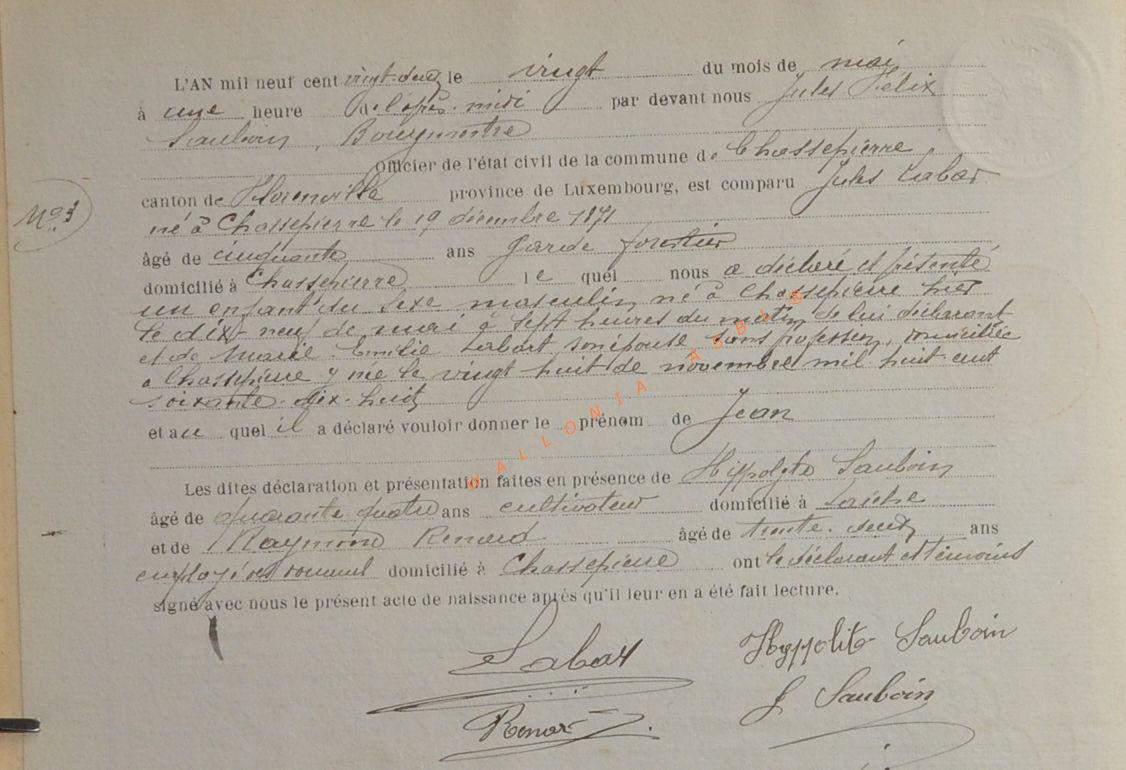 L'AN mil neuf cent vingt-deux le vingt du mois de mai
à une heure de l'après-midi par devant nous Jules Félix
Sauboin, Bourgmestre
Officier de l'état civil de la commune de Chassepierre,
canton de Florenville province de Luxembourg, est comparu Jules Labar
né à Chassepierre le 19 décembre 1871
N° 3
âgé de cinquante ans garde forestier
domicilié à Chassepierre le quel nous a déclaré et présenté
un enfant du sexe masculin, né à Chassepierre hier
le dix neuf de mai à sept heures du matin, de lui déclarant
et de Marie Emilie son épouse, sans profession, domiciliée
à Chassepierre y née le vingt huit de novembre mil huit cent
soixante-dix-huit
et au quel il a déclaré vouloir donner le prénom de Jean
Les dites déclaration et présentation faites en présence de Hippolyte Sauboin
âgé de quarante quatre ans cultivateur domicilié à Laiche
et de Raymond Renard âgé de trente-deux ans
employé domicilié à Chassepierre ont le déclarant et témoins
signé avec nous le présent acte de naissance après qu'il leur en a été fait lecture.
Labar Hyppolite Sauboin
J Sauboin
Renard
WALLONIA ASBL